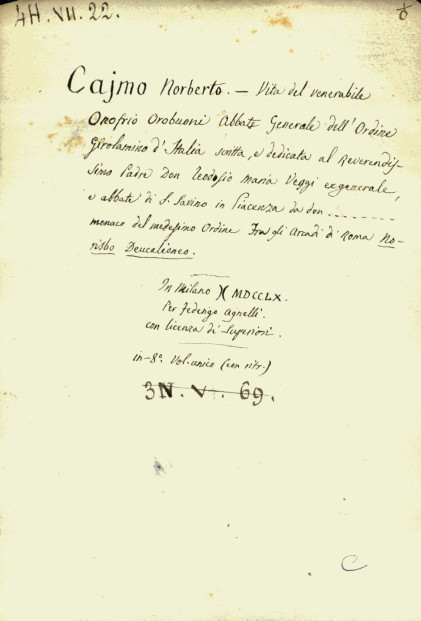 4H. VII. 22.
Cajmo Norberto. — Vita del venerabile
Onofrio Orobuoni Abbate Generale dell'Ordine
Girolamino d'Italia scritta, e dedicata al Reverendis-
simo Padre Don Teodosio Maria Veggi exgenerale,
e abbate di S. Savino in Piacenza da don . . . . . . . .
monaco del medesimo Ordine Fra gli Arcadi di Roma No-
risbo Deucalioneo.
In Milano )( MDCCLX.
Per Federigo Agnelli.
con licenza de' Superiori.
in-8º. Vol. unico (con ritr.)
3N. V. 69.
C